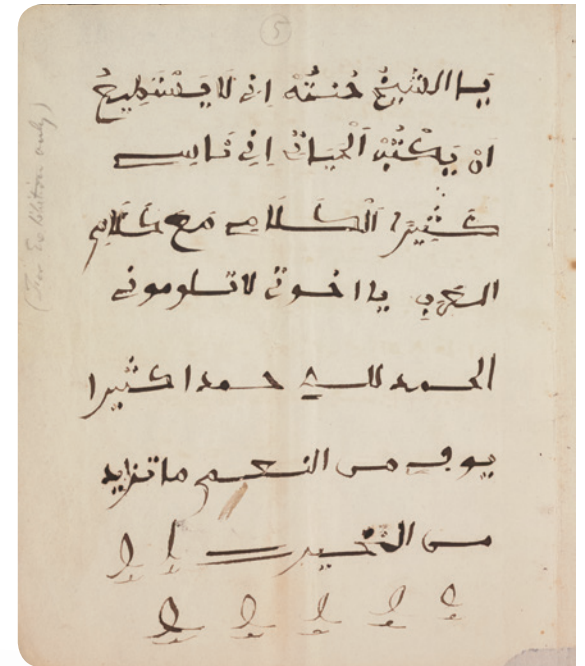 5
(For Exhibition only)
يَا الشَّيْخُ حُنْتُهْ اِنِي لَا يَسْتَطِيعُ
اَنْ يَكْتُبْ اَلْحَيَاتِي اِنِي نَاسِي
كَثِيرًا اَلْكَلَامِي مَعَ كَلَامِ
العَرَبِ يا اخوتي لا تلوموني
الحمد لله حمدا كثيرا
يوفي من النعم ما تزايد
من الخير